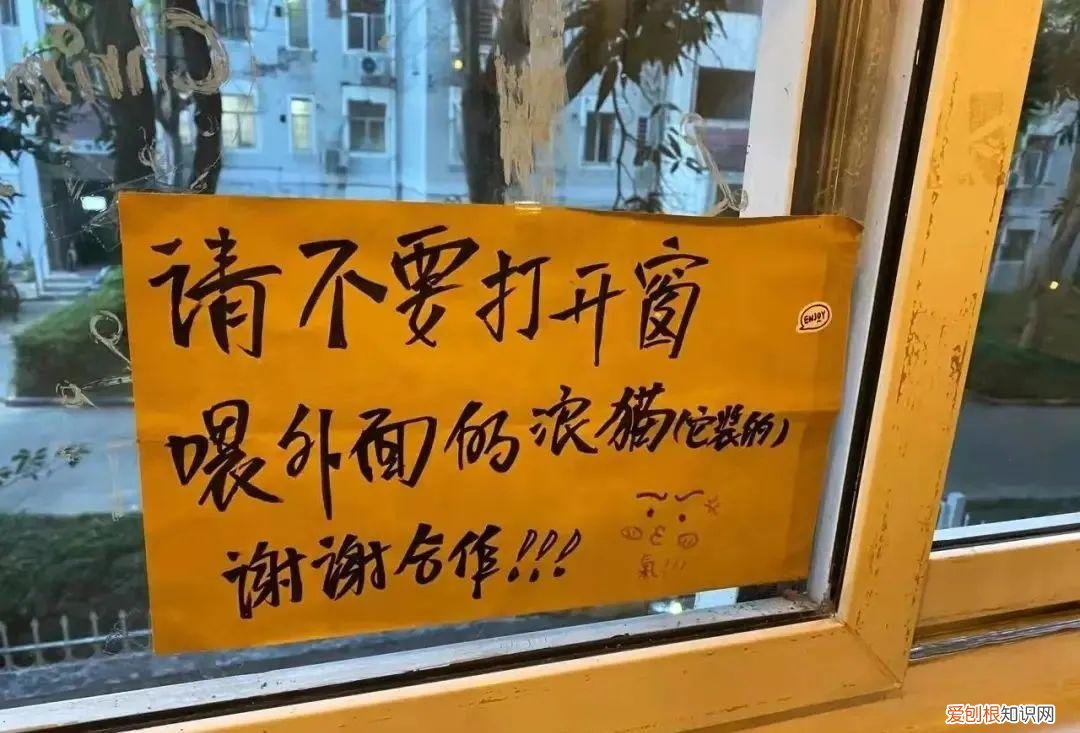 请不要打开窗
ENJOY
喂外面的浪猫(它装的)
谢谢合作!!!
氣!!!
爱刨根知识网